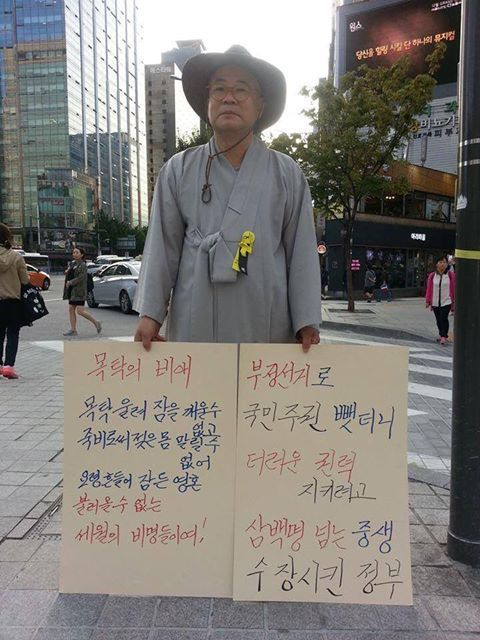 원스
당신을 힐링 시킬 단 하나의 뮤지컬
목탁의 비애
목탁 울려 잠을 깨울수
없고
국비로써 젖은 몸 말릴 수
없어
요령흔들어 잠든 영혼
불러올수 없는
세월의 비명들이여!
부정선거로
국민주권 뺏더니
더러운 권력
지키려고
삼백명 넘는 중생
수장시킨 정부